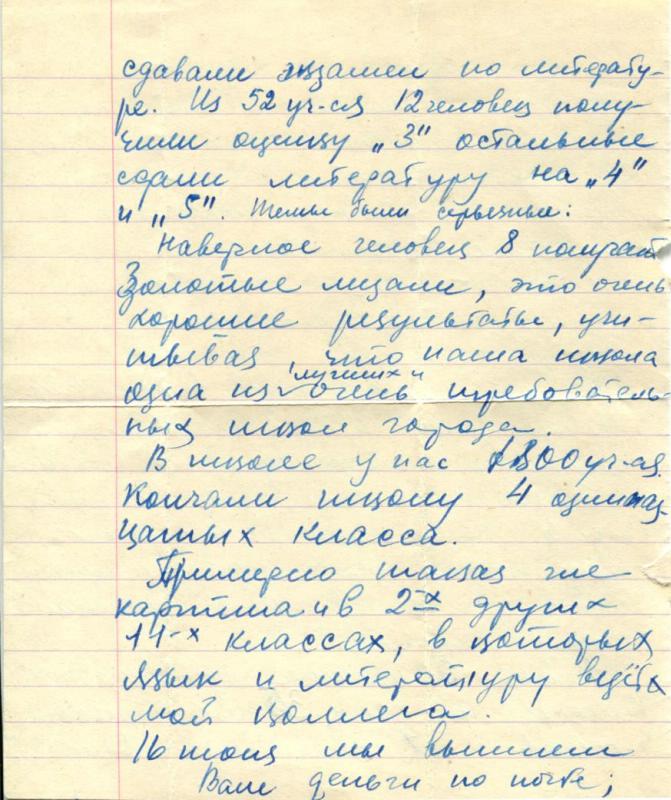 сдавали экзамен по литерату-
ре. Из 52 уч-ся 12 человек полу-
чили оценку „3" остальные
сдали литературу на „4"
и „5". Темы были серьезные:
Наверное человек 8 получат
Золотые медали, это очень
хорошие результаты, учи-
тывая, что наша школа
одна из лучших и очень требователь-
ных школ города.
В школе у нас 1300 уч-ся.
Кончали школу 4 одиннад-
цатых класса.
Примерно такая же
картина и в 2-х других
11-х классах, в которых
язык и литературу ведёт
мой коллега.
16 июня мы вышлем
Вам деньги по почте;